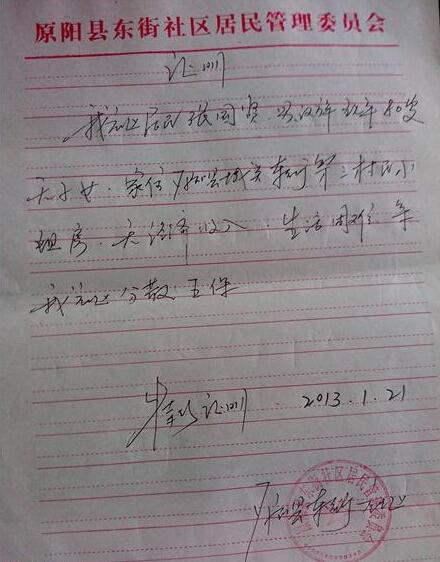 原阳县东街社区居民管理委员会
证明
我社区居民张国贤.男汉族现年80岁
无子女.家住原阳县城关东街第三村民小
组房.无经济收入.生活困难.系
我社区分散五保
特此证明 2013.1.21
原阳县东街社区